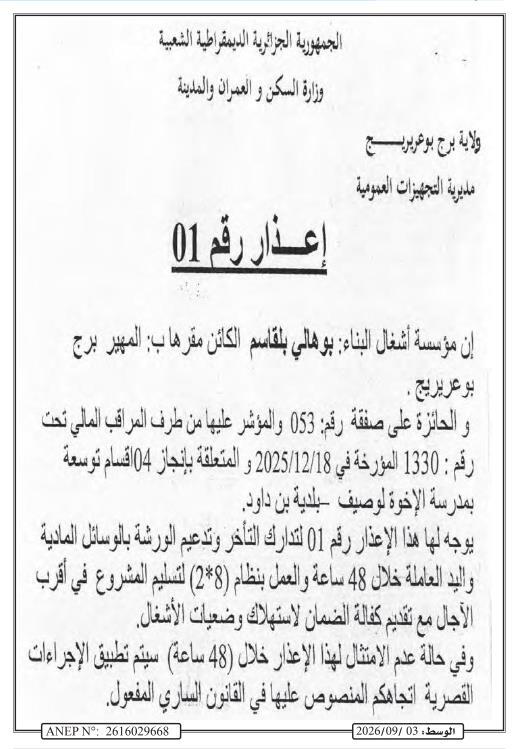 الجمهورية الجزائرية الديمقراطية الشعبية
وزارة السكن و العمران والمدينة
ولاية برج بوعريريـــــج
مديرية التجهيزات العمومية
إعـــذار رقم 01
إن مؤسسة أشغال البناء: بوهالي بلقاسم الكائن مقرها ب: المهير برج
بوعريريج .
و الحائزة على صفقة رقم: 053 والمؤشر عليها من طرف المراقب المالي تحت
رقم : 1330 المؤرخة في 2025/12/18 و المتعلقة بإنجاز 04اقسام توسعة
بمدرسة الإخوة لوصيف –بلدية بن داود.
يوجه لها هذا الإعذار رقم 01 لتدارك التأخر وتدعيم الورشة بالوسائل المادية
واليد العاملة خلال 48 ساعة والعمل بنظام (8*2) لتسليم المشروع في أقرب
الآجال مع تقديم كفالة الضمان لاستهلاك وضعيات الأشغال.
وفي حالة عدم الامتثال لهذا الإعذار خلال (48 ساعة) سيتم تطبيق الإجراءات
القصرية اتجاهكم المنصوص عليها في القانون الساري المفعول.
الوسط: 03 /2026/09
ANEP N°: 2616029668